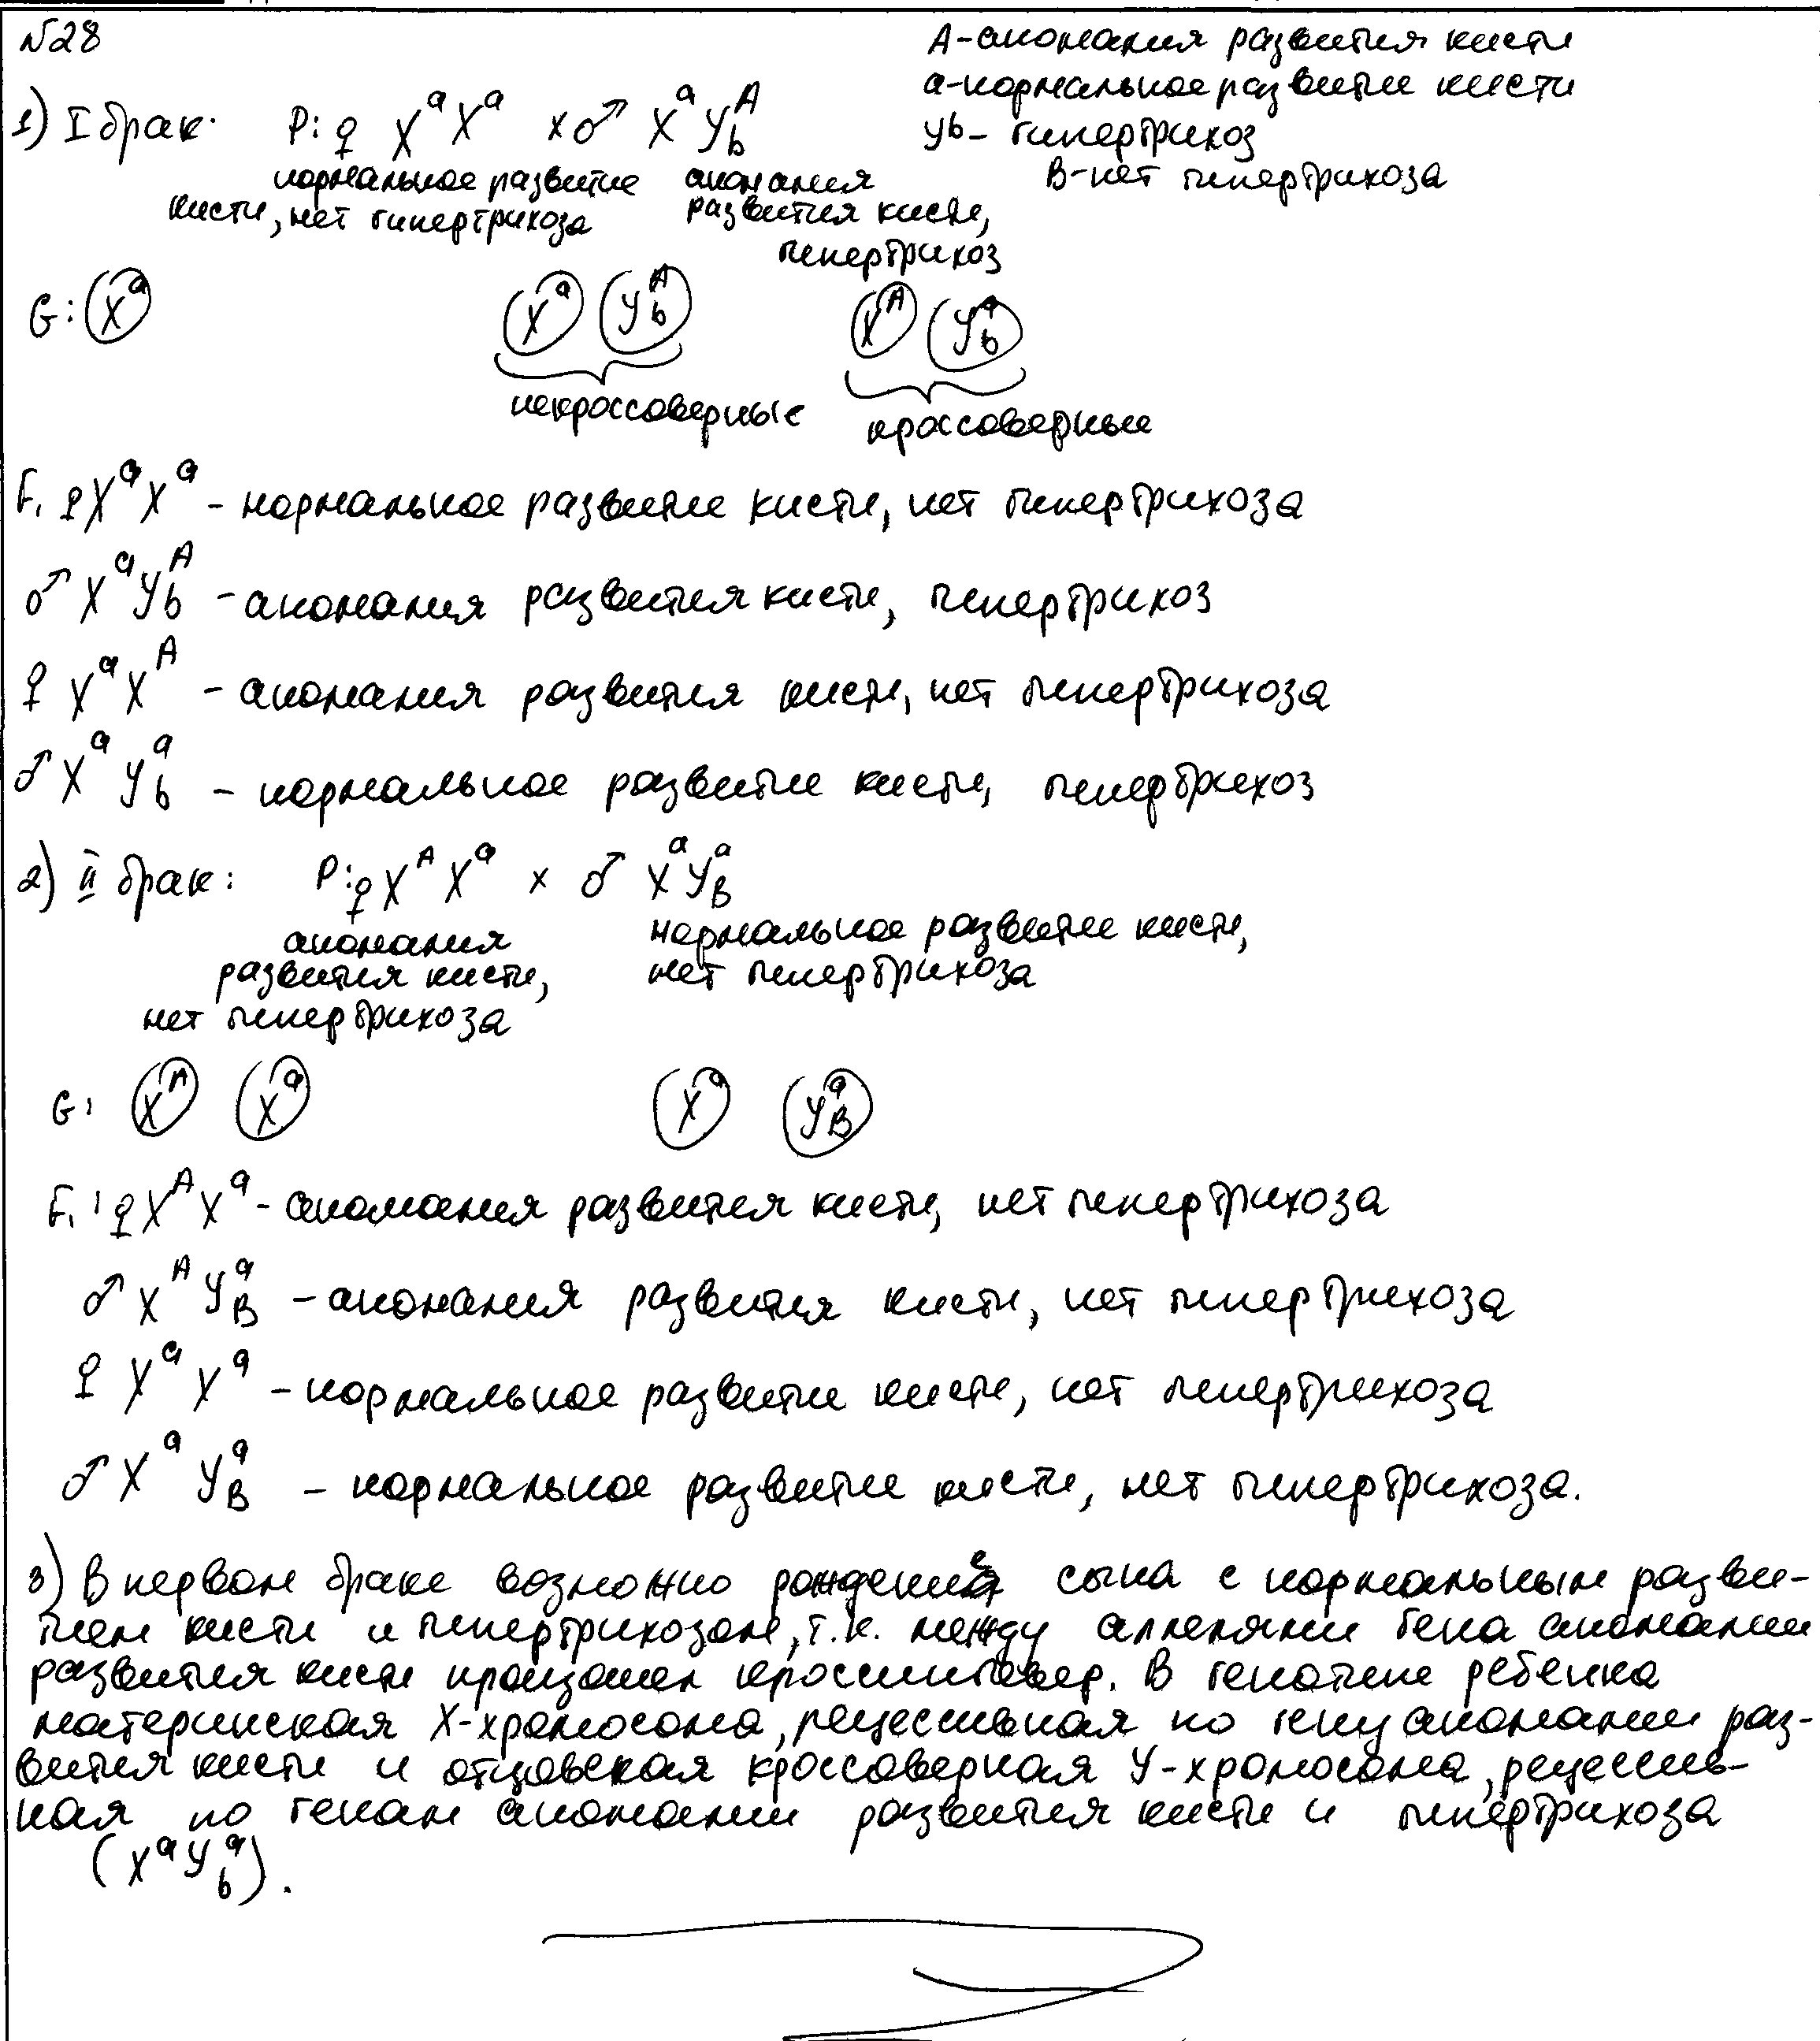 №28
А-аномалия развития кисти
а-нормальное развитие кисти
Yb - гипертрихоз
В-нет гипертрихоза
1) I брак: P: ♀ XᵃXᵃ x ♂ XᵃYbᴬ
нормальное развитие аномалия
кисти, нет гипертрихоза развития кисти,
гипертрихоз
G: Xᵃ Xᵃ Ybᴬ Xᴬ Ybᵃ
некроссоверные кроссоверные
F₁ ♀XᵃXᵃ - нормальное развитие кисти, нет гипертрихоза
♂ XᵃYbᴬ - аномалия развития кисти, гипертрихоз
♀ XᵃXᴬ - аномалия развития кисти, нет гипертрихоза
♂ XᵃYbᵃ - нормальное развитие кисти, гипертрихоз
2) II брак: P: ♀ XᴬXᵃ x ♂ XᵃYBᵃ
аномалия нормальное развитие кисти,
развития кисти, нет гипертрихоза
нет гипертрихоза
G: Xᴬ Xᵃ Xᵃ YBᵃ
F₁: ♀XᴬXᵃ - аномалия развития кисти, нет гипертрихоза
♂ XᴬYBᵃ - аномалия развития кисти, нет гипертрихоза
♀ XᵃXᵃ - нормальное развитие кисти, нет гипертрихоза
♂ XᵃYBᵃ - нормальное развитие кисти, нет гипертрихоза.
3) В первом браке возможно рождение сына с нормальным разви-
тием кисти и гипертрихозом, т.к. между аллелями гена аномалии
развития кисти произошел кроссинговер. В генотипе ребенка
материнская X-хромосома, рецессивная по гену аномалии раз-
вития кисти и отцовская кроссоверная Y-хромосома, рецессив-
ная по генам аномалии развития кисти и гипертрихоза
(XᵃYbᵃ).